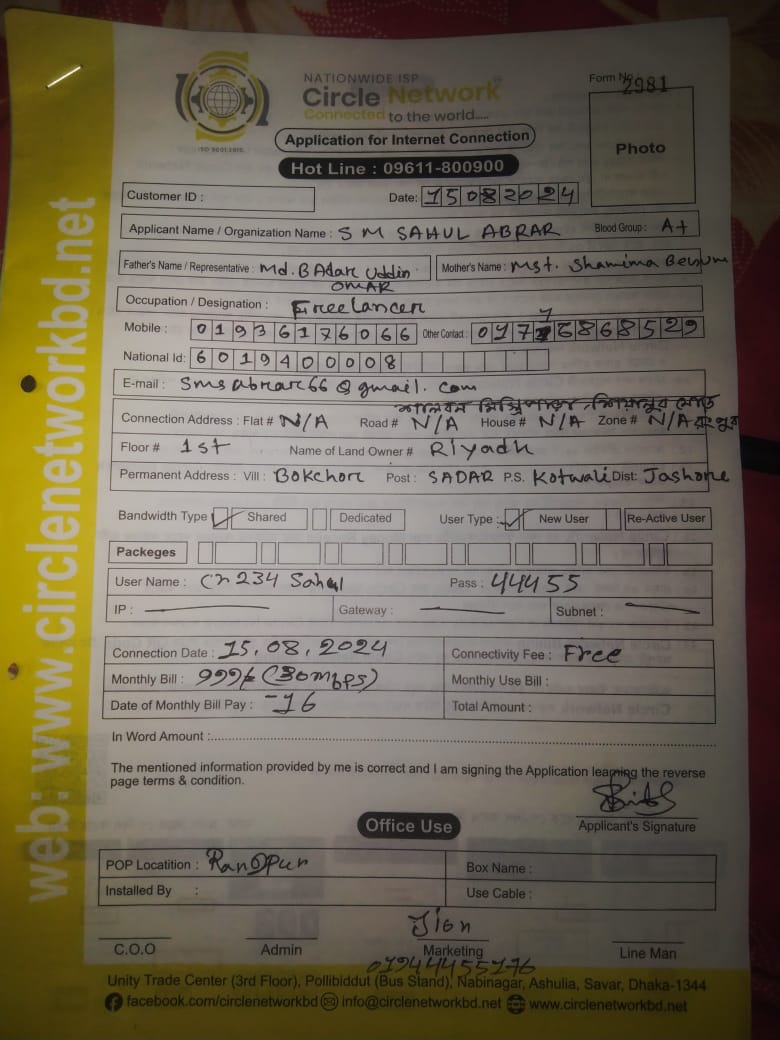 NATIONWIDE ISP
Circle Network
Connected to the world.....
ISO 9001:2015
Form No. 2981
Application for Internet Connection
Hot Line : 09611-800900
Photo
Customer ID :
Date: 15082024
Applicant Name / Organization Name : S M SAHUL ABRAR Blood Group : A+
Father's Name / Representative : Md. B Adar Uddin OMAR
Mother's Name : Mst. Shamima Begum
Occupation / Designation : Freelancer
Mobile : 01936176066 Other Contact : 01776868529
National Id: 6019400008
E-mail : smsabrar66@gmail.com
Connection Address : Flat # N/A Road # N/A House # N/A Zone # N/A রংপুর
Floor # 1st Name of Land Owner # Riyadh
Permanent Address : Vill : Bokchor Post : SADAR P.S. Kotwali Dist: Jashore
Bandwidth Type Shared Dedicated User Type : New User Re-Active User
Packeges
User Name : Cn234 Sahul Pass : 44455
IP : Gateway : Subnet :
Connection Date : 15.08.2024 Connectivity Fee : Free
Monthly Bill : 999/= (30mbps) Monthly Use Bill :
Date of Monthly Bill Pay : -16 Total Amount :
In Word Amount :
The mentioned information provided by me is correct and I am signing the Application learning the reverse
page terms & condition.
Applicant's Signature
Office Use
POP Locatition : Rangpur Box Name :
Installed By : Use Cable :
C.O.O Admin Marketing Line Man
01944455176
Unity Trade Center (3rd Floor), Pollibiddut (Bus Stand), Nabinagar, Ashulia, Savar, Dhaka-1344
facebook.com/circlenetworkbd info@circlenetworkbd.net www.circlenetworkbd.net
web: www.circlenetworkbd.net